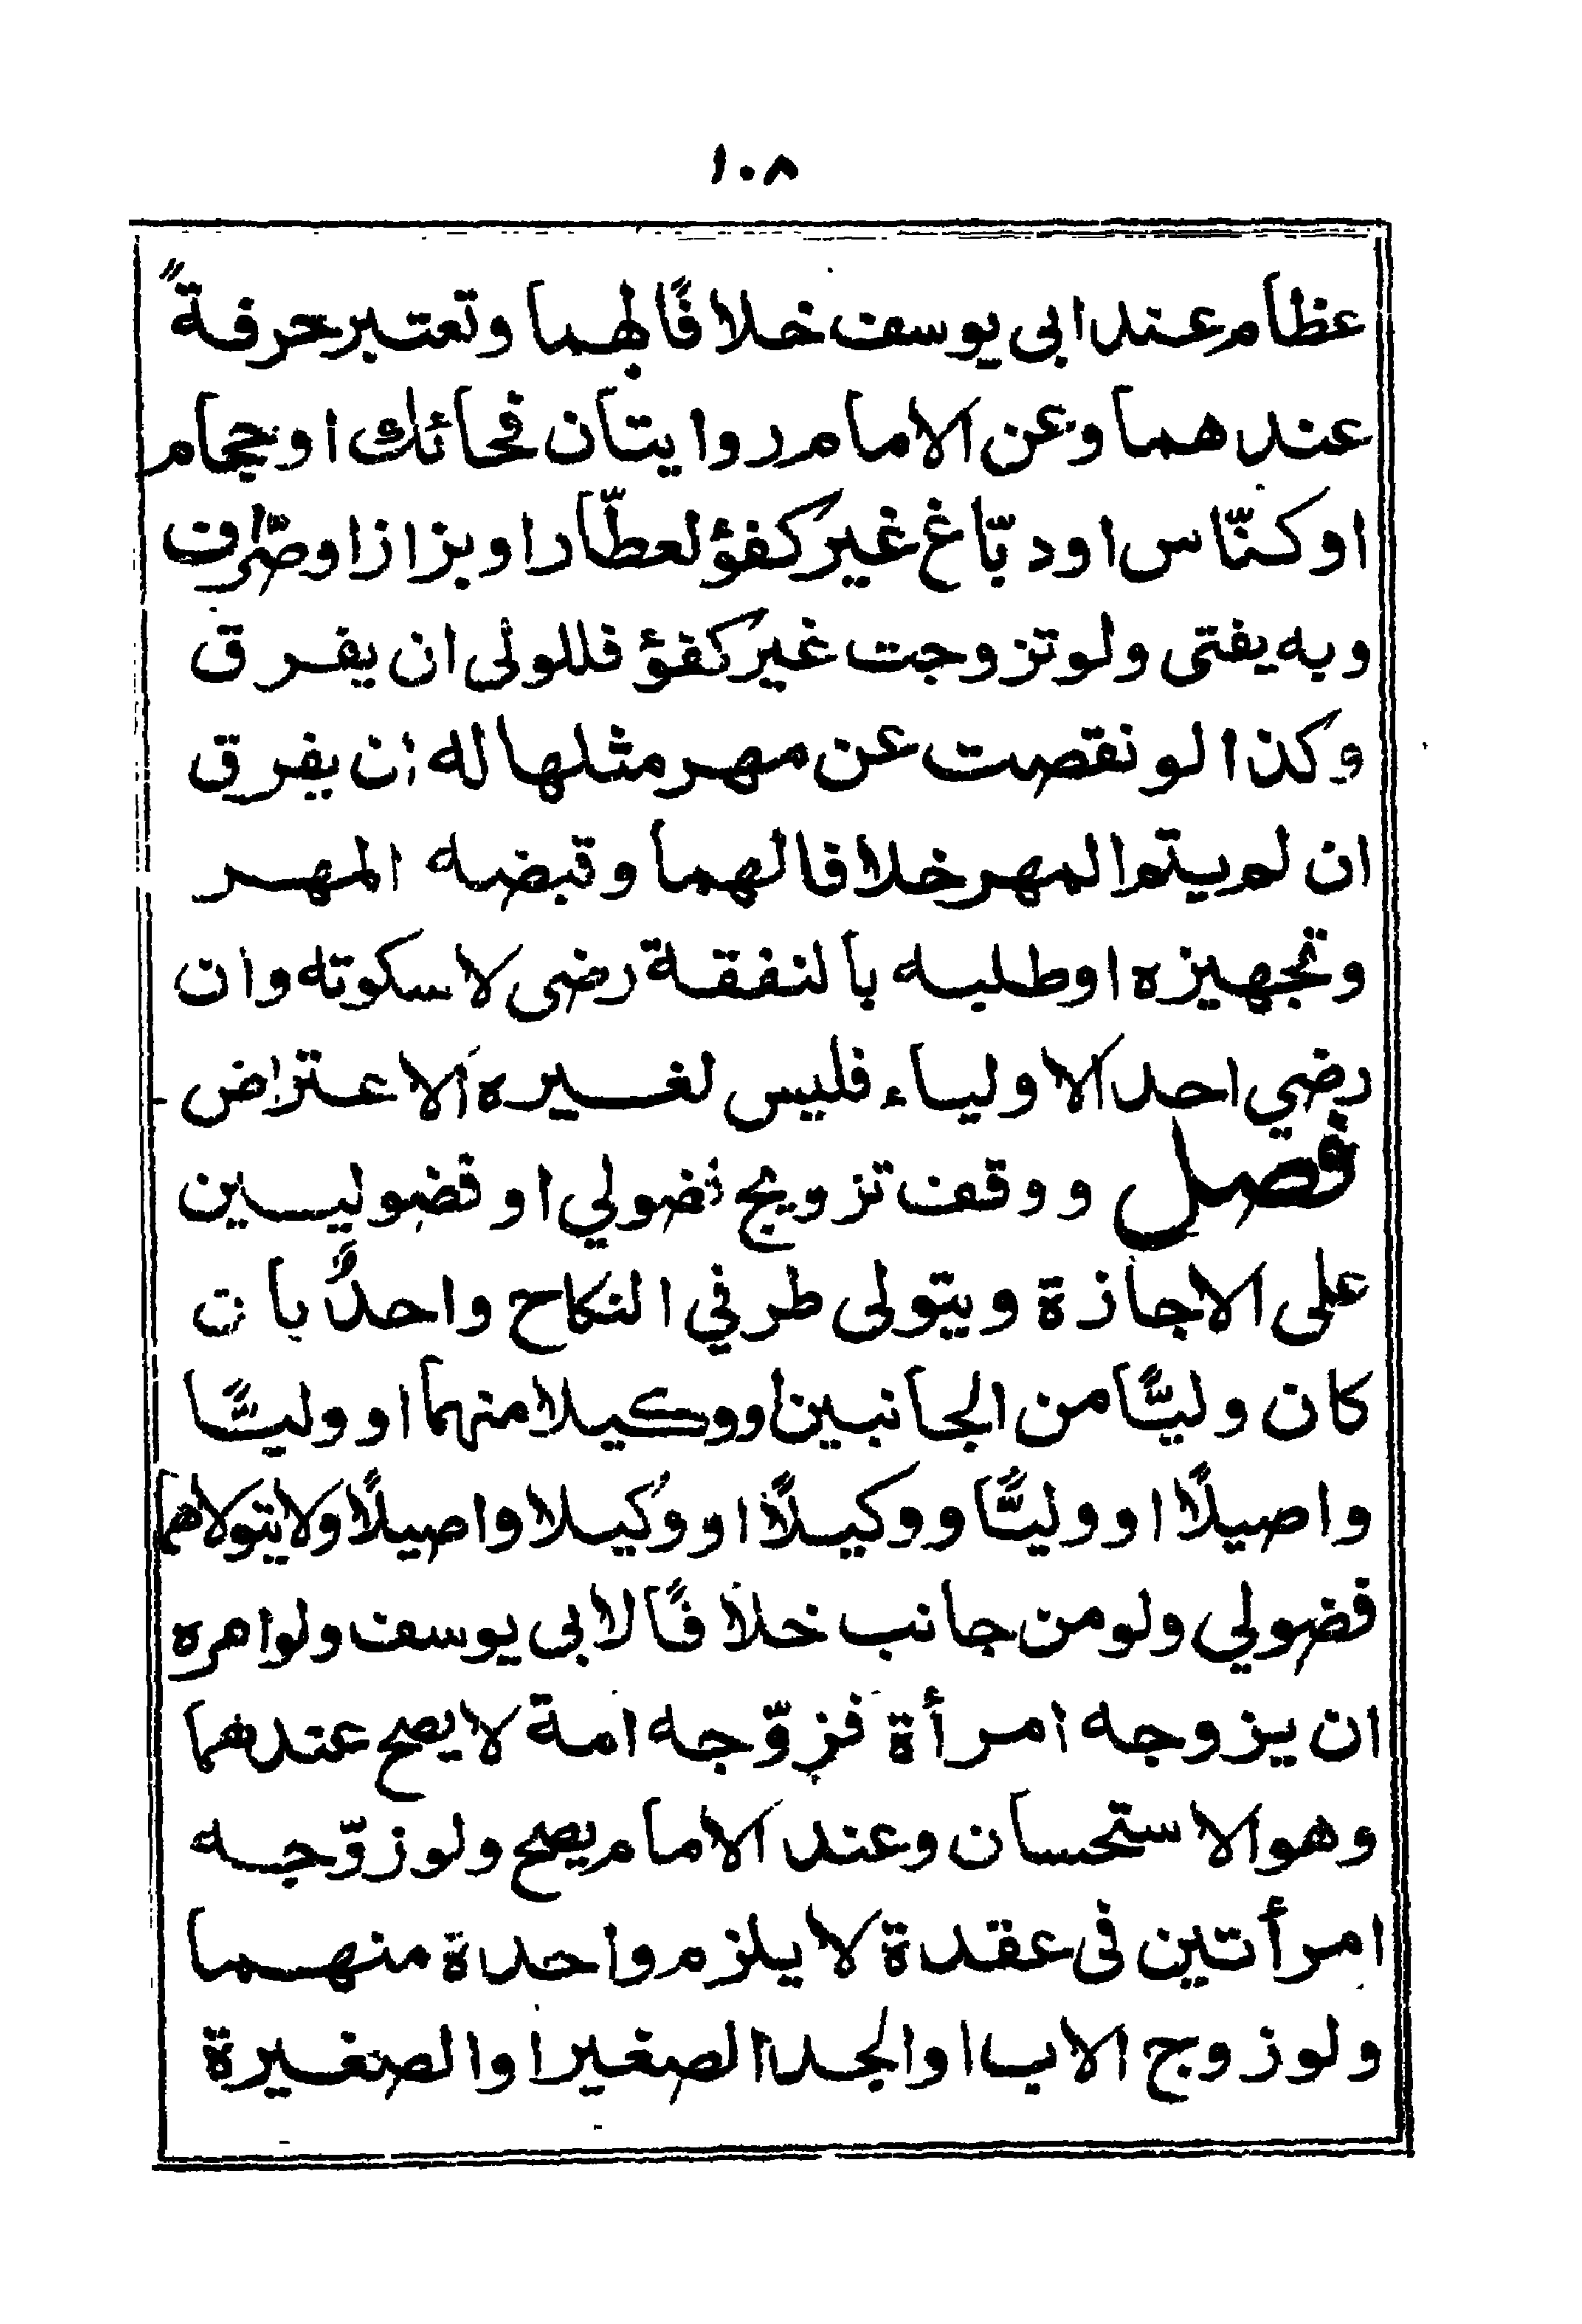 ١٠٨
عظام عند ابى يوسف خلافًا لهما وتعتبر حرفةً
عندهما وعن الامام روايتان فحائك او حجام
او كنّاس او دبّاغ غير كفؤ لعطّار او بزاز او صرّاف
وبه يفتى ولو تزوجت غير كفؤ فللولى ان يفرق
وكذا لو نقصت عن مهر مثلها له ان يفرق
ان لم يتم المهر خلافا لهما وقبضه المهر
وتجهيزه او طلبه بالنفقة رضى لا سكوته وان
رضي احد الاولياء فليس لغيره الاعتراض
فصل ووقف تزويج فضولي او فضوليين
على الاجازة ويتولى طرفي النكاح واحدٌ بان
كان وليًّا من الجانبين او وكيلا منهما او وليًّا
واصيلًا او وليًّا ووكيلًا او وكيلا واصيلًا ولا يتولاهما
فضولي ولو من جانب خلافًا لابى يوسف ولو امره
ان يزوجه امرأة فزوّجه امة لا يصح عندهما
وهو الاستحسان وعند الامام يصح ولو زوّجه
امرأتين فى عقدة لا يلزم واحدة منهما
ولو زوج الاب او الجد الصغير او الصغيرة